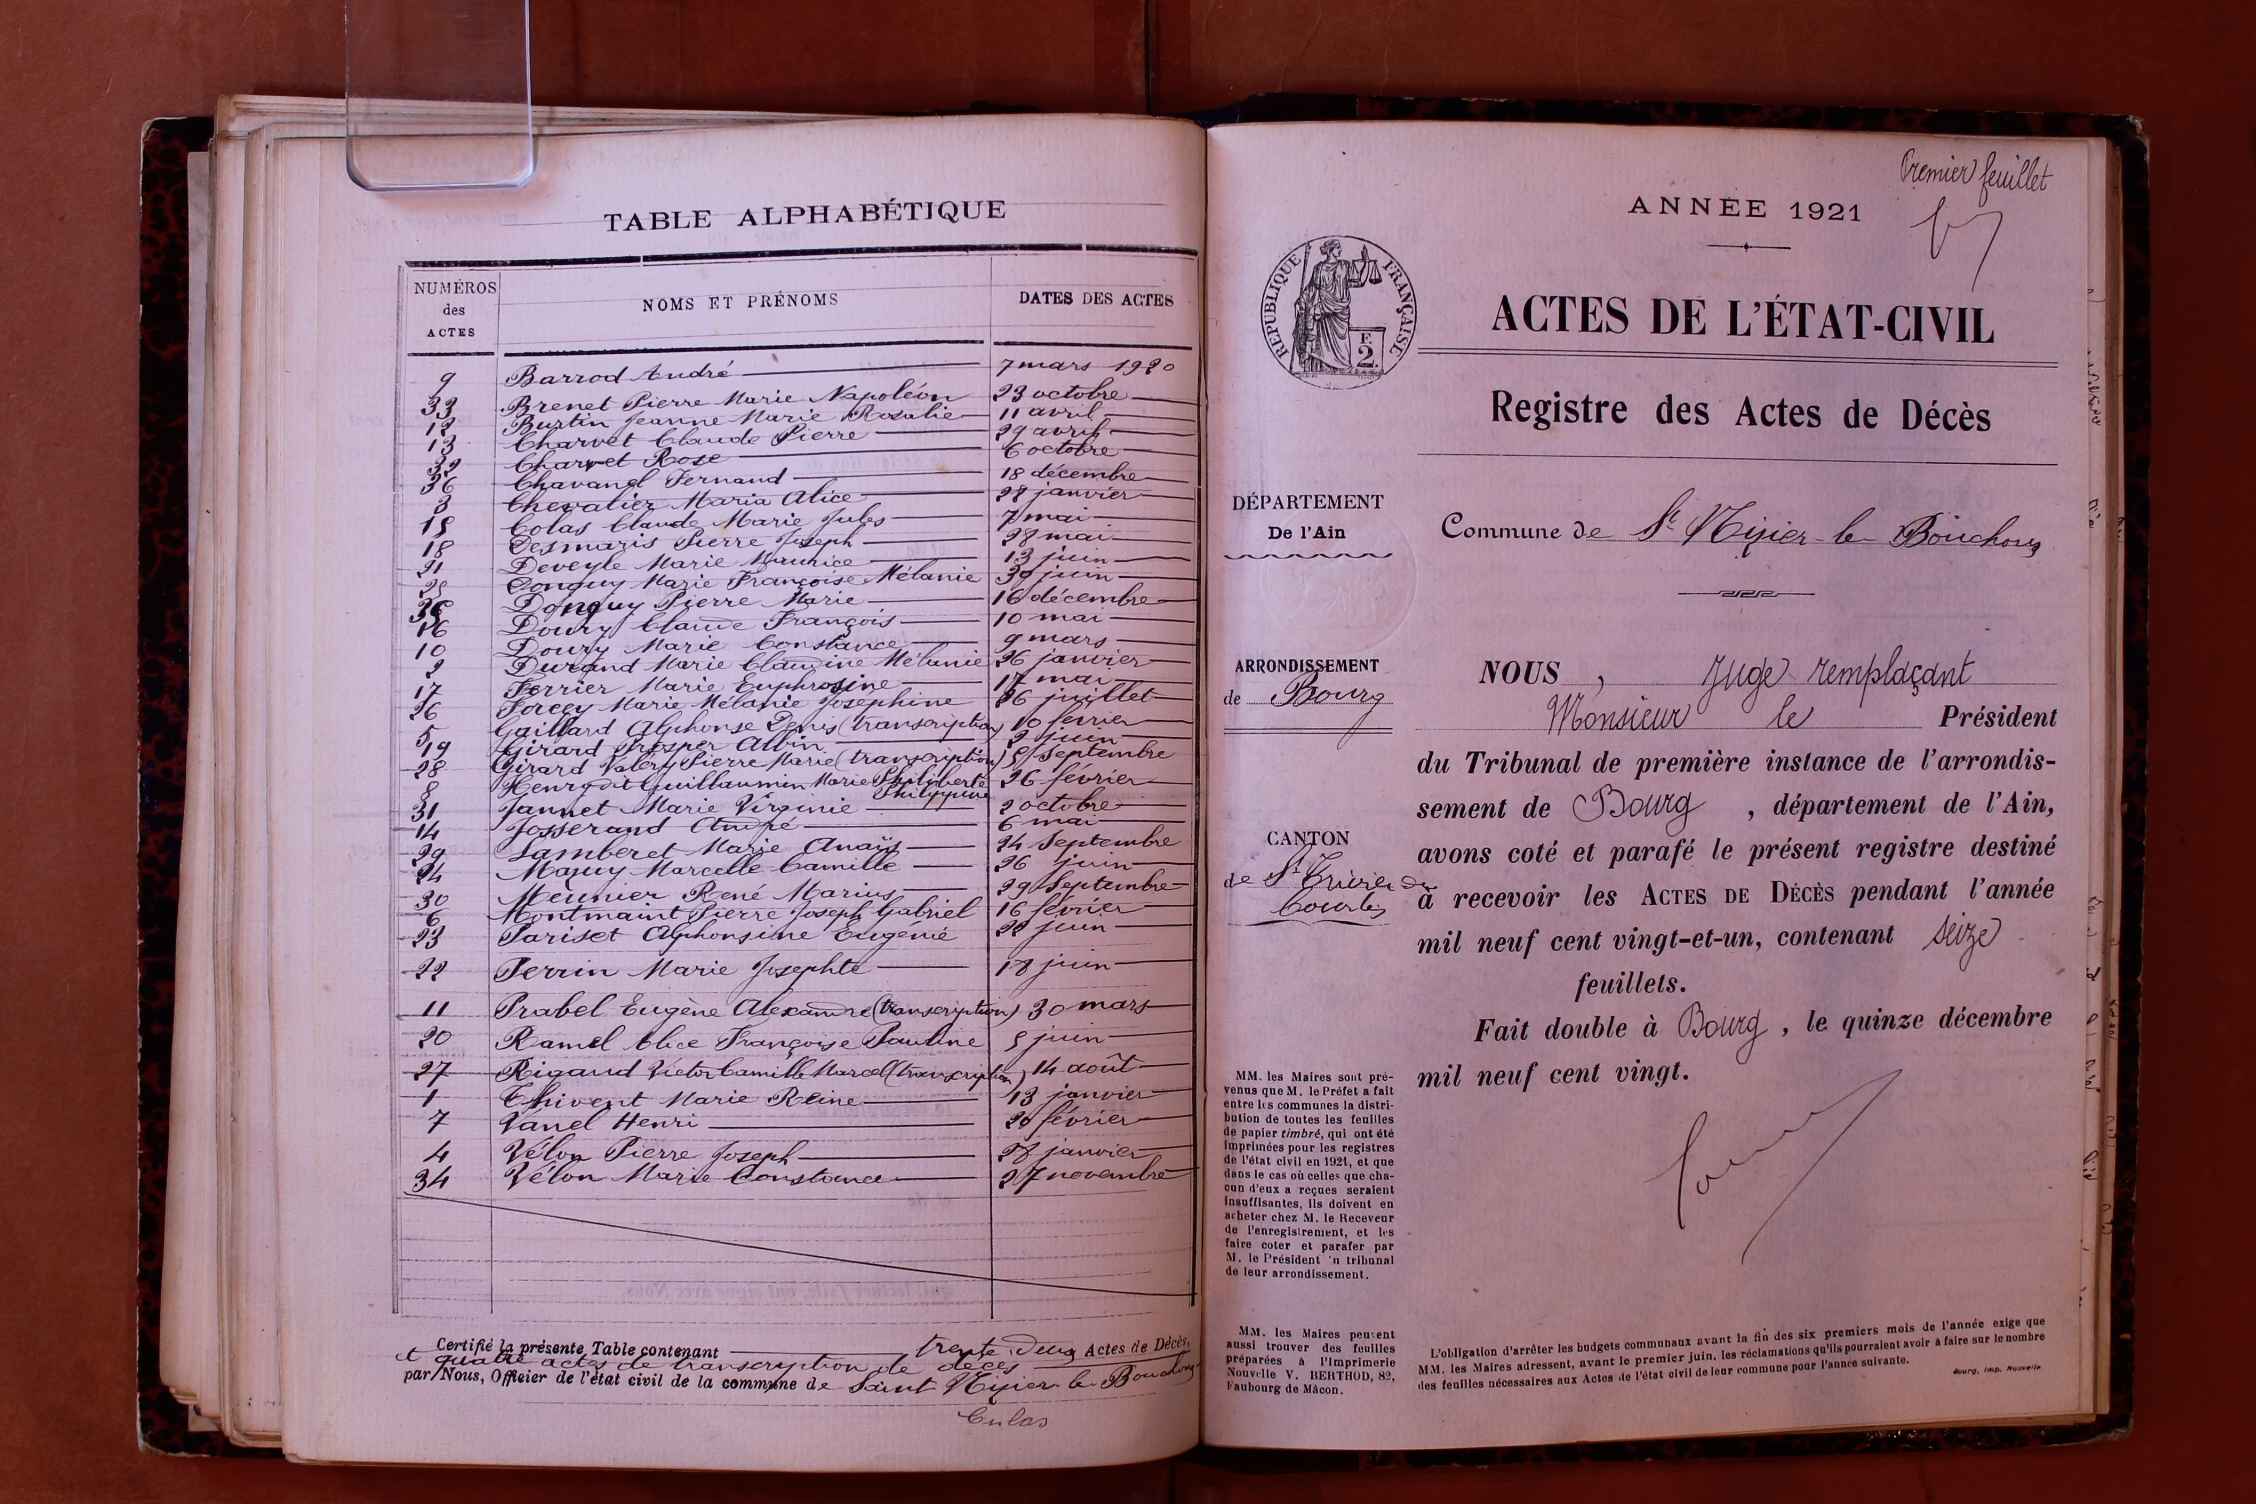 TABLE ALPHABÉTIQUE
NUMÉROS des ACTES NOMS ET PRÉNOMS DATES DES ACTES
9 Barrod André 7 mars 1920
33 Brenet Pierre Marie Napoléon 23 octobre
12 Burtin Jeanne Marie Rosalie 11 avril
13 Charvet Claude Pierre 29 avril
32 Charvet Rose 6 octobre
36 Chavanel Fernand 18 décembre
3 Chevalier Maria Alice 28 janvier
15 Colas Claude Marie Jules 7 mai
18 Desmaris Pierre Joseph 28 mai
21 Deveyle Marie Maurice 13 juin
25 Donguy Marie Françoise Mélanie 30 juin
35 Donguy Pierre Marie 16 décembre
16 Doury Claude François 10 mai
10 Doury Marie Constance 9 mars
2 Durand Marie Claudine Mélanie 26 janvier
17 Ferrier Marie Euphrosine 17 mai
26 Forcey Marie Mélanie Joséphine 26 juillet
5 Gaillard Alphonse Denis (transcription) 10 février
19 Girard Prosper Albin 2 juin
28 Girard Valéry Pierre Marie (transcription) 5 Septembre
8 Henry dit Guillaumin Marie Philiberte Philippine 26 février
31 Jannet Marie Virginie 2 octobre
14 Josserand André 6 mai
29 Lamberet Marie Anaïs 24 Septembre
24 Maruy Marcelle Camille 26 juin
30 Meunier René Marius 29 Septembre
6 Montmaint Pierre Joseph Gabriel 16 février
23 Pariset Alphonsine Eugénie 22 juin
22 Perrin Marie Josephte 18 juin
11 Prabel Eugène Alexandre (transcription) 30 mars
20 Ramel Alice Françoise Pauline 5 juin
27 Rigaud Victor Camille Marcel (transcription) 14 août
1 Thivent Marie Reine 13 janvier
7 Vanel Henri 20 février
4 Vélon Pierre Joseph 28 janvier
34 Vélon Marie Constance 27 novembre
Certifié la présente Table contenant trente deux Actes de Décès,
et quatre actes de transcription de décès
par Nous, Officier de l'état civil de la commune de Saint Nizier le Bouchoux
Culas
Premier feuillet
ANNÉE 1921
RÉPUBLIQUE FRANÇAISE
F.
2
ACTES DE L'ÉTAT-CIVIL
Registre des Actes de Décès
DÉPARTEMENT
De l'Ain
Commune de St Nizier-le-Bouchoux
ARRONDISSEMENT
de Bourg
CANTON
de St Trivier de
Courtes
NOUS, Juge remplaçant
Monsieur le Président
du Tribunal de première instance de l'arrondis-
sement de Bourg, département de l'Ain,
avons coté et parafé le présent registre destiné
à recevoir les ACTES DE DÉCÈS pendant l'année
mil neuf cent vingt-et-un, contenant seize
feuillets.
Fait double à Bourg, le quinze décembre
mil neuf cent vingt.
MM. les Maires sont pré-
venus que M. le Préfet a fait
entre les communes la distri-
bution de toutes les feuilles
de papier timbré, qui ont été
imprimées pour les registres
de l'état civil en 1921, et que
dans le cas où celles que cha-
cun d'eux a reçues seraient
insuffisantes, ils doivent en
acheter chez M. le Receveur
de l'enregistrement, et les
faire coter et parafer par
M. le Président 'u tribunal
de leur arrondissement.
MM. les Maires peuvent
aussi trouver des feuilles
préparées à l'Imprimerie
Nouvelle V. BERTHOD, 82,
Faubourg de Mâcon.
L'obligation d'arrêter les budgets communaux avant la fin des six premiers mois de l'année exige que
MM. les Maires adressent, avant le premier juin, les réclamations qu'ils pourraient avoir à faire sur le nombre
des feuilles nécessaires aux Actes de l'état civil de leur commune pour l'année suivante.
Bourg, Imp. Nouvelle